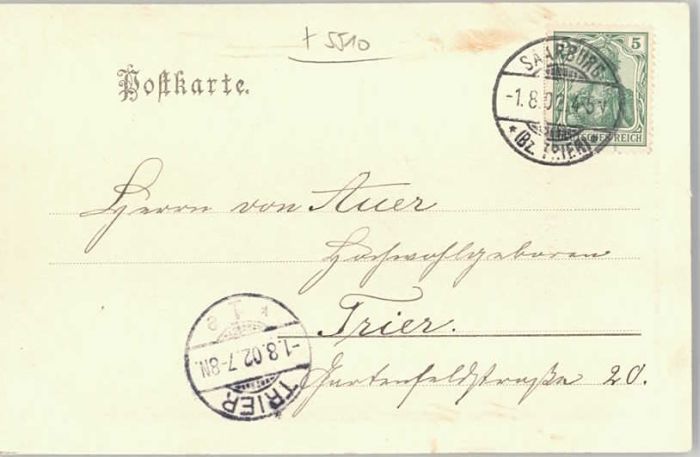 + 5510
Postkarte.
5
DEUTSCHES REICH
SAARBURG
-1.8.02. 4-5 V
* (BZ. TRIER) *
Herrn von Auer
Hochwohlgeboren
Trier.
Gartenfeldstraße 20.
* 1 e
-1.8.02.7-8N.
TRIER